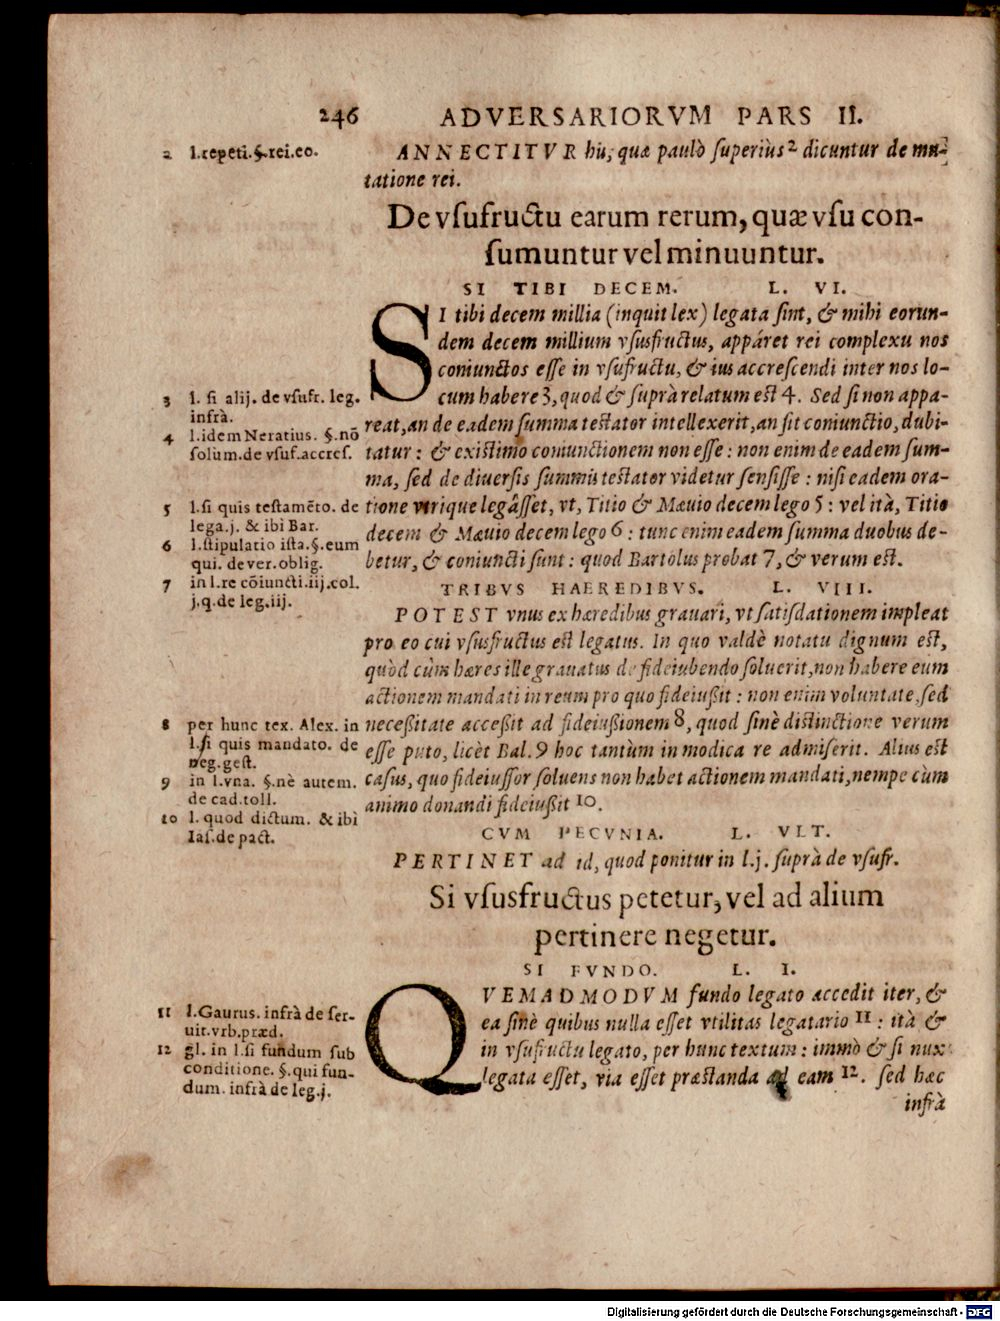 246 ADVERSARIORVM PARS II.
2 l.repeti.§.rei.eo.
ANNECTITVR his, quæ paulò ſuperiùs 2 dicuntur de mu-
tatione rei.
De vſufructu earum rerum, quæ vſu con-
ſumuntur vel minuuntur.
SI TIBI DECEM. L. VI.
SI tibi decem millia (inquit lex) legata ſint, & mihi eorun-
dem decem millium vſusfructus, appáret rei complexu nos
coniunctos eſſe in vſufructu, & ius accreſcendi inter nos lo-
cum habere 3, quod & ſuprà relatum eſt 4. Sed ſi non appa-
reat, an de eadem ſumma teſtator intellexerit, an ſit coniunctio, dubi-
tatur: & exiſtimo coniunctionem non eſſe: non enim de eadem ſum-
ma, ſed de diuerſis ſummis teſtator videtur ſenſiſſe: niſi eadem ora-
tione vtrique legâſſet, vt, Titio & Mæuio decem lego 5: vel ità, Titio
decem & Mæuio decem lego 6: tunc enim eadem ſumma duobus de-
betur, & coniuncti ſunt: quod Bartolus probat 7, & verum eſt.
3 l. ſi alij. de vſufr. leg.
infrà.
4 l.idem Neratius. §.nō
ſolùm.de vſuf.accreſ.
5 l.ſi quis teſtamẽto. de
lega.j. & ibi Bar.
6 l.ſtipulatio iſta.§.eum
qui. de ver.oblig.
7 in l.re cōiuncti.iij.col.
j.q.de leg.iij.
TRIBVS HAEREDIBVS. L. VIII.
POTEST vnus ex hæredibus grauari, vt ſatiſdationem impleat
pro eo cui vſusfructus eſt legatus. In quo valdè notatu dignum eſt,
quòd cùm hæres ille grauatus de fideiubendo ſoluerit, non habere eum
actionem mandati in reum pro quo fideiußit: non enim voluntate, ſed
neceßitate acceßit ad fideiußionem 8, quod ſinè diſtinctione verum
eſſe puto, licèt Bal. 9 hoc tantùm in modica re admiſerit. Alius eſt
caſus, quo fideiuſſor ſoluens non habet actionem mandati, nempe cùm
animo donandi fideiußit 10.
8 per hunc tex. Alex. in
l.ſi quis mandato. de
neg.geſt.
9 in l.vna. §.nè autem.
de cad.toll.
10 l. quod dictum. & ibì
Iaſ.de pact.
CVM PECVNIA. L. VLT.
PERTINET ad id, quod ponitur in l.j. ſuprà de vſufr.
Si vſusfructus petetur, vel ad alium
pertinere negetur.
SI FVNDO. L. I.
QVEMADMODVM fundo legato accedit iter, &
ea ſinè quibus nulla eſſet vtilitas legatario 11: ità &
in vſufructu legato, per hunc textum: immò & ſi nux
legata eſſet, via eſſet præſtanda ad eam 12. ſed hæc
infrà
11 l.Gaurus. infrà de ſer-
uit.vrb.præd.
12 gl. in l.ſi fundum ſub
conditione. §.qui fun-
dum. infrà de leg.j.
Digitalisierung gefördert durch die Deutsche Forschungsgemeinschaft - DFG